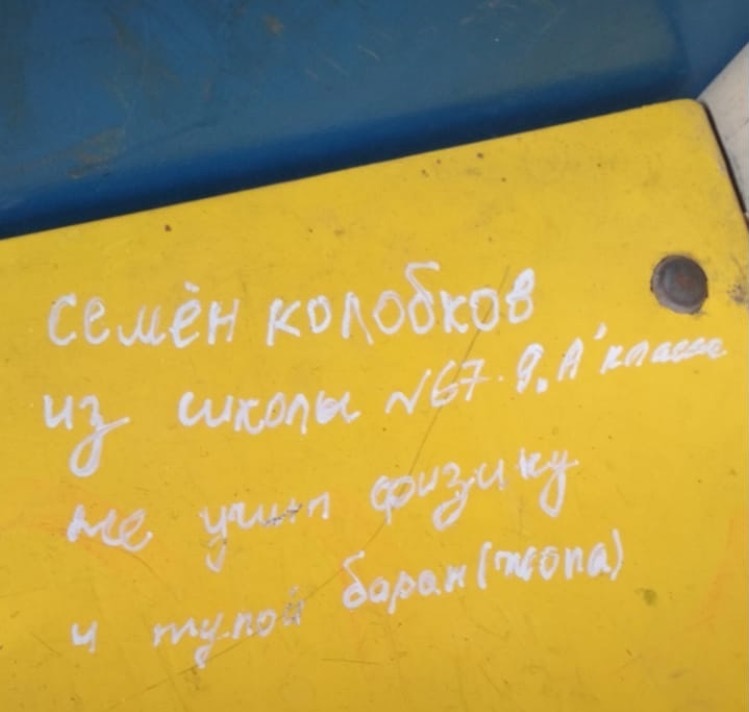 семён колобков
из школы №67 9 „А" класса
не учит физику
и тупой баран (жопа)